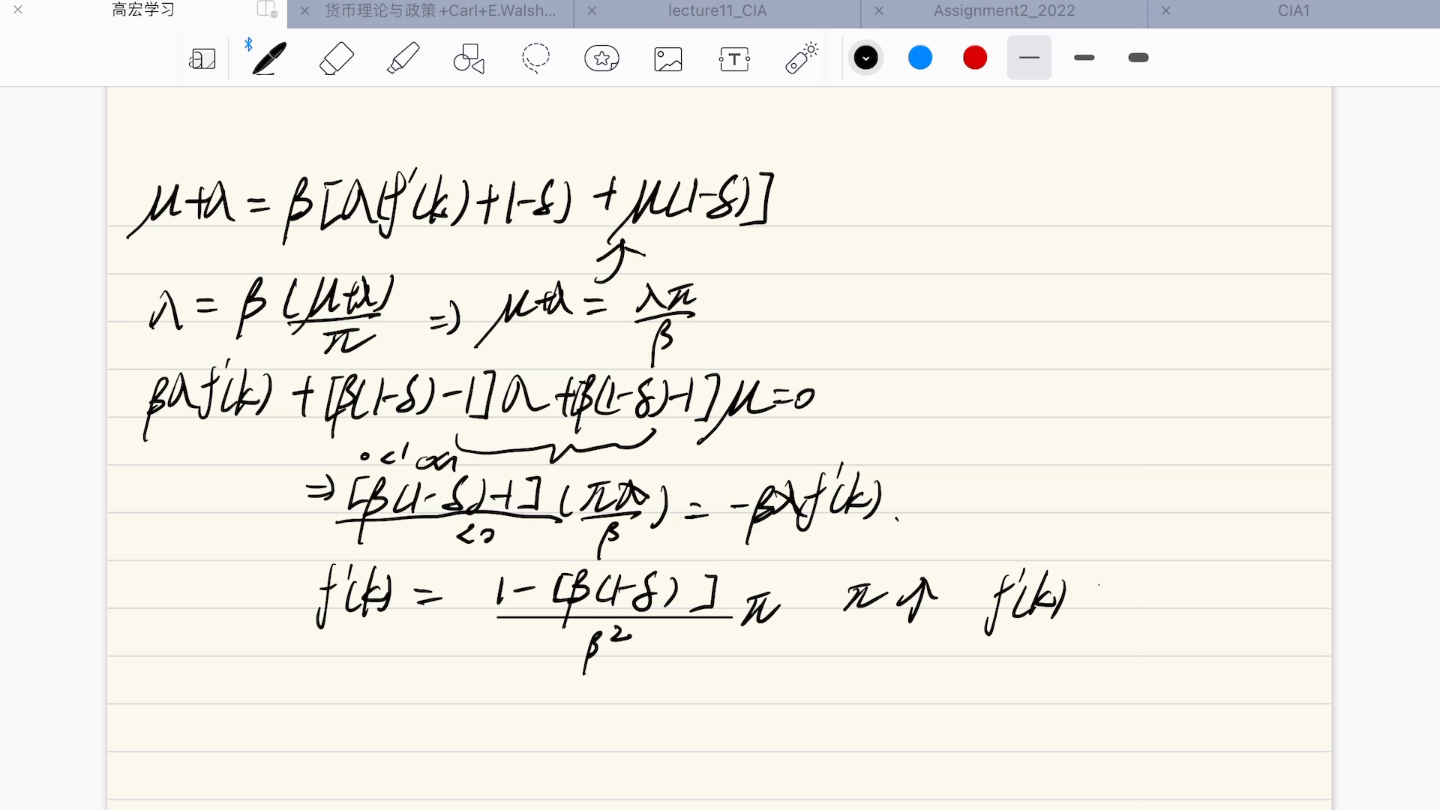 高宏学习
货币理论与政策+Carl+E.Walsh...
lecture11_CIA
Assignment2_2022
CIA1
μ+λ = β[λ(f'(k)+1-δ) + μ(1-δ)]
λ = β (μ+λ)/π ⇒ μ+λ = λπ/β
βλf'(k) + [β(1-δ)-1]λ + [β(1-δ)-1]μ=0
0<1
⇒ [β(1-δ)-1] (πλ/β) = -βλf'(k).
<0
f'(k) = 1-[β(1-δ)]/β² π π↑ f'(k)